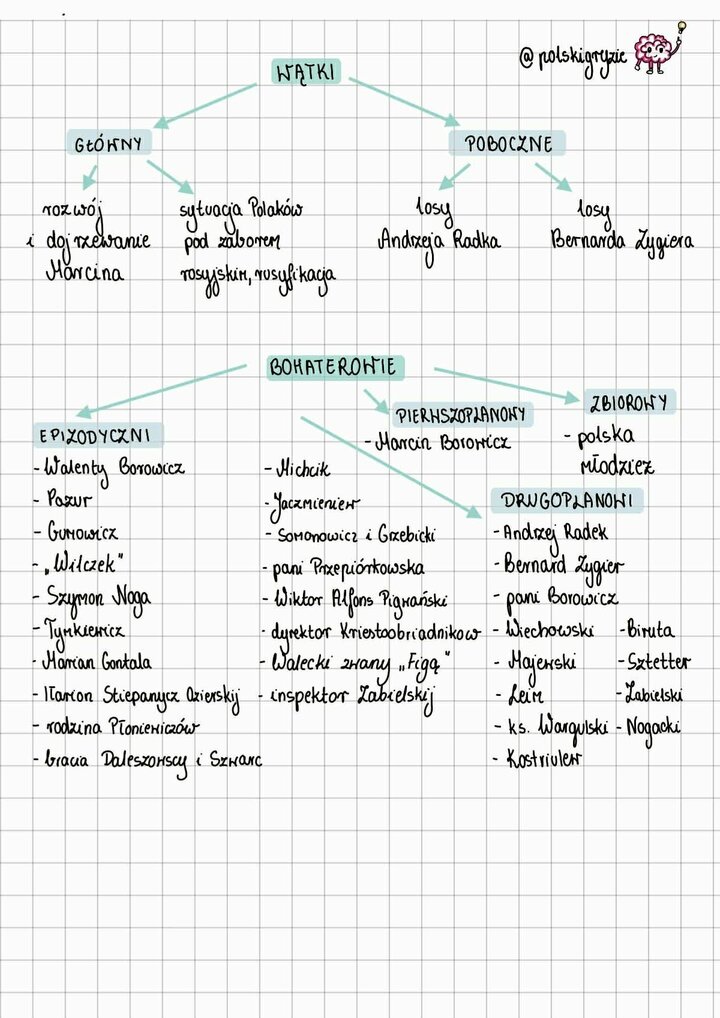 @polskigryzie
WĄTKI
GŁÓWNY
rozwój
i dojrzewanie
Marcina
sytuacja Polaków
pod zaborem
rosyjskim, rusyfikacja
POBOCZNE
losy
Andrzeja Radka
losy
Bernarda Zygiera
BOHATEROWIE
EPIZODYCZNI
- Walenty Borowicz
- Pazur
- Gumowicz
- „Wilczek"
- Szymon Noga
- Tymkiewicz
- Marian Gontala
- Ilarion Stiepanycz Ozierskij
- rodzina Płoniewiczów
- bracia Daleszowscy i Szwarc
- Michcik
- Jaczmieniew
- Somonowicz i Grzebicki
- pani Przepiórkowska
- Wiktor Alfons Pigwański
- dyrektor Kriestoobriadnikow
- Walecki zwany „Figą"
- inspektor Zabielskij
PIERWSZOPLANOWY
- Marcin Borowicz
ZBIOROWY
- polska
młodzież
DRUGOPLANOWI
- Andrzej Radek
- Bernard Zygier
- pani Borowicz
- Wiechowski
- Majewski
- Leim
- ks. Wargulski
- Kostriulew
- Biruta
- Sztetter
- Zabielski
- Nogacki